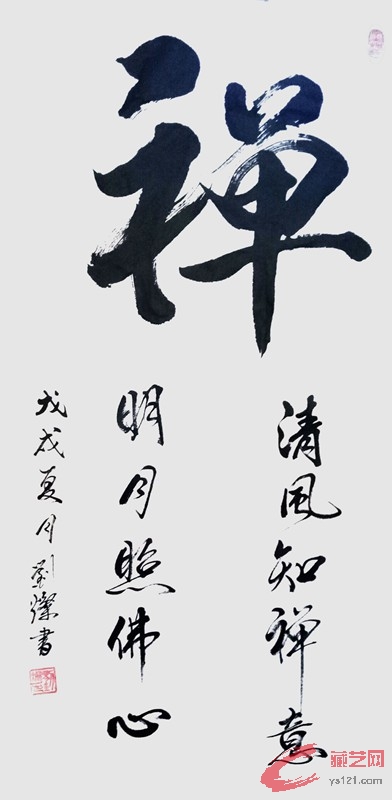 禅
清风知禅意
明月照佛心
戊戌夏月刘灿书
藏艺网
ys121.com